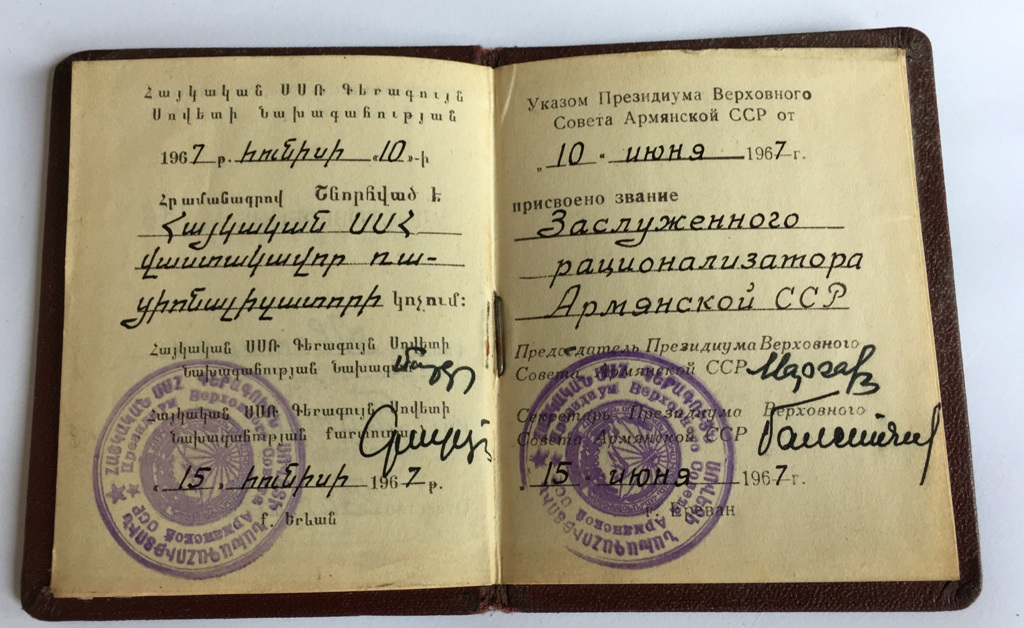 Հայկական ՍՍՌ Գերագույն
Սովետի Նախագահության
1967 թ. հունիսի «10»-ի
Հրամանագրով Շնորհված է
Հայկական ՍՍՀ
վաստակավոր ռա-
ցիոնալիզատորի կոչում:
Հայկական ՍՍՌ Գերագույն Սովետի
Նախագահության Նախագահ
Հայկական ՍՍՌ Գերագույն Սովետի
Նախագահության քարտուղար
"15" հունիսի 1967 թ.
ք. Երևան
Указом Президиума Верховного
Совета Армянской ССР от
"10" июня 1967 г.
присвоено звание
Заслуженного
рационализатора
Армянской ССР
Председатель Президиума Верховного
Совета Армянской ССР
Секретарь Президиума Верховного
Совета Армянской ССР
"15" июня 1967 г.
г. Ереван